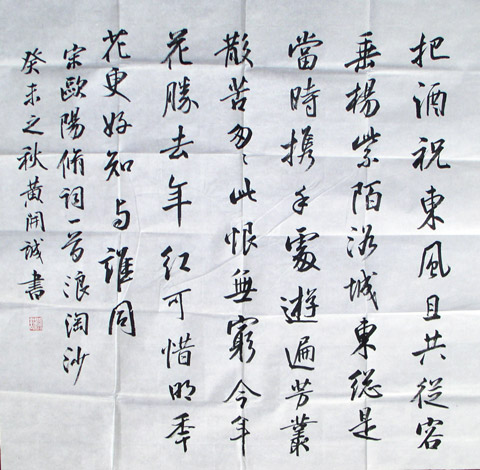 把酒祝東風且共從容
垂楊紫陌洛城東総是
當時携手處遊遍芳叢
散苦匆匆此恨無窮今年
花勝去年紅可惜明年
花更好知与誰同
宋歐陽脩詞一首浪淘沙
癸未之秋黃開誠書